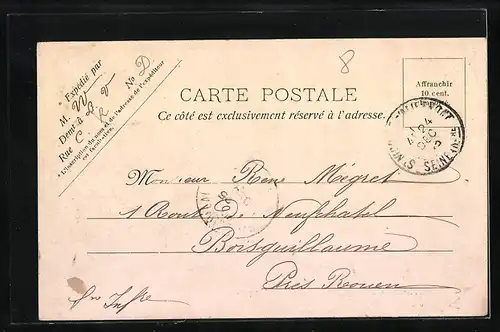 * Expédié par
M. W
Demt à L. V
Rue C R No D
* L'inscription du nom et de l'adresse de l'expéditeur
est facultative.
8
Affranchir
10 cent.
CARTE POSTALE
Ce côté est exclusivement réservé à l'adresse.
24
DEC
SEINE
Monsieur Rene Mégret
1 Route de Neufchatel
Boisguillaume
Près Rouen
Sne Infre